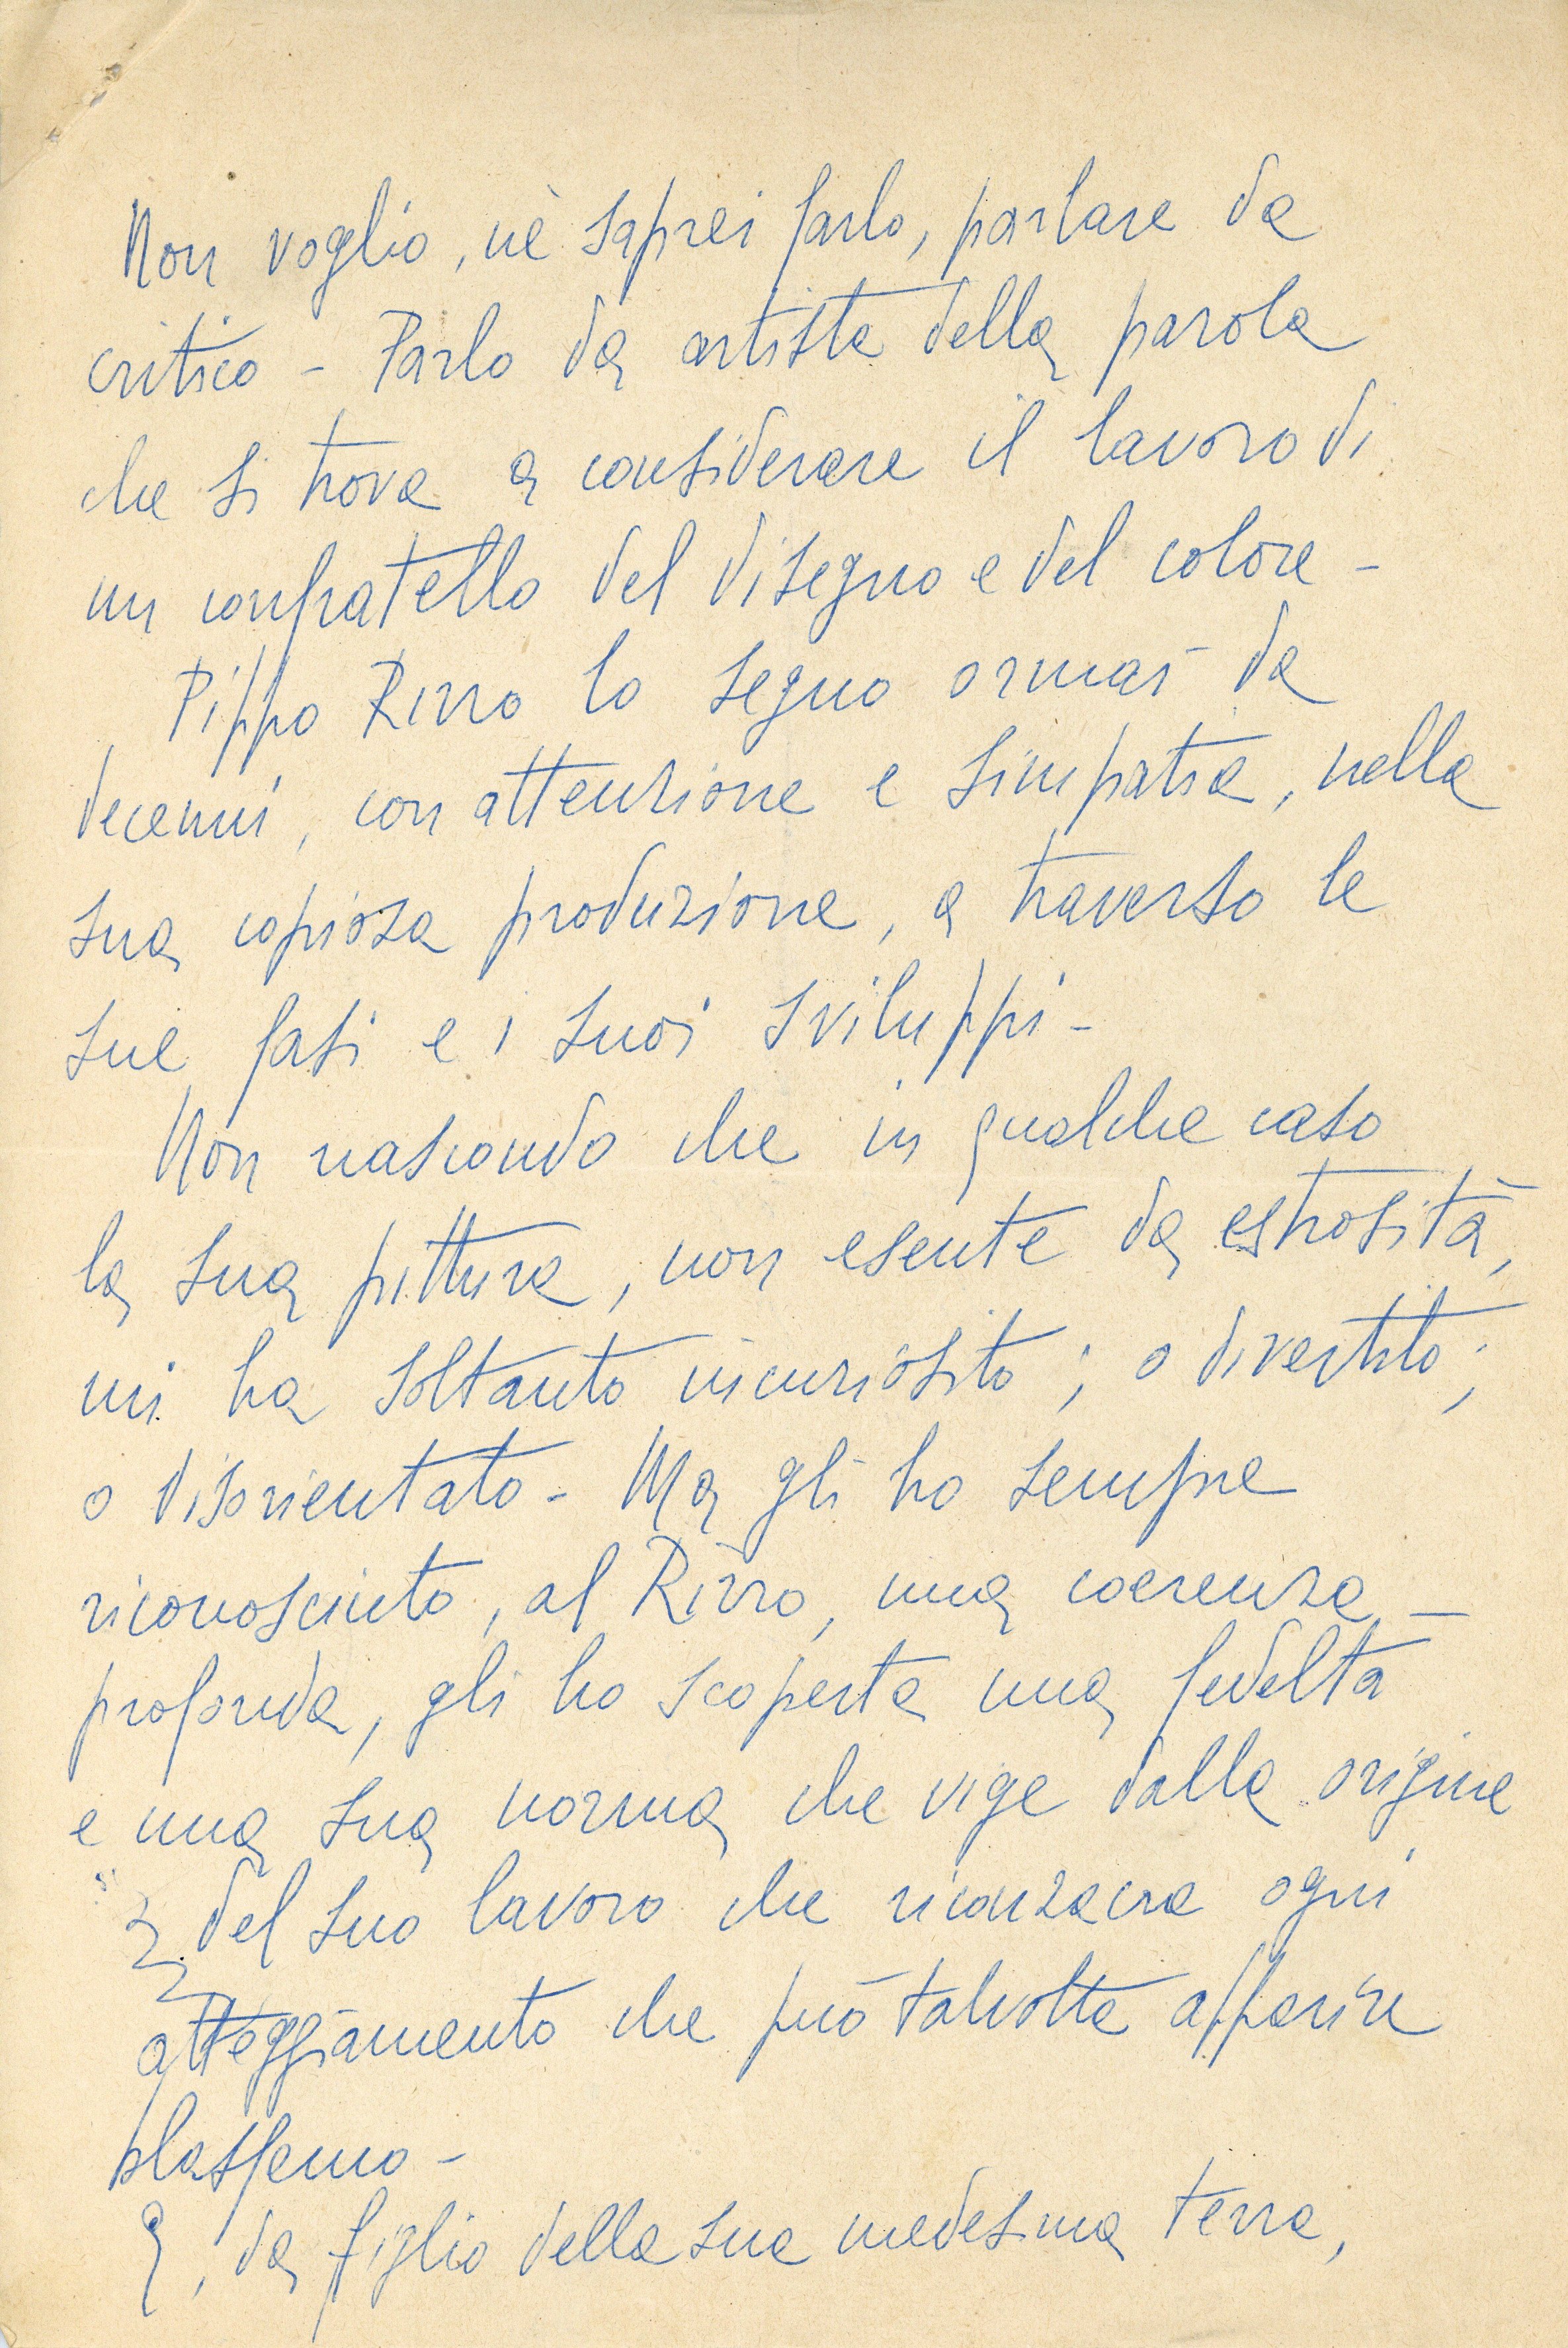 Non voglio, nè saprei farlo, parlare da
critico - Parlo da artista della parola
che si trova a considerare il lavoro di
un confratello del disegno e del colore -
Pippo Rizzo lo seguo ormai da
decenni, con attenzione e simpatia, nella
sua copiosa produzione, a traverso le
sue fasi e i suoi sviluppi -
Non nascondo che in qualche caso
la sua pittura, non esente da estrosità,
mi ha soltanto incuriosito; o divertito;
o disorientato - Ma gli ho sempre
riconosciuto, al Rizzo, una coerenza
profonda, gli ho scoperta una fedeltà
e una sua norma che vige dalla origine
del suo lavoro che riconsacra ogni
atteggiamento che può talvolta apparire
blasfemo -
E, da figlio della sua medesima terra,